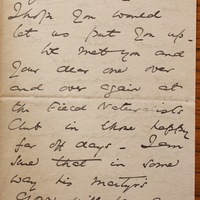 I hope you would
let us put you up.
We met you and
your dear one over
and over again at
the Field Naturalists
Club in those happy
far off days - I am
sure that in some
way his martyr's